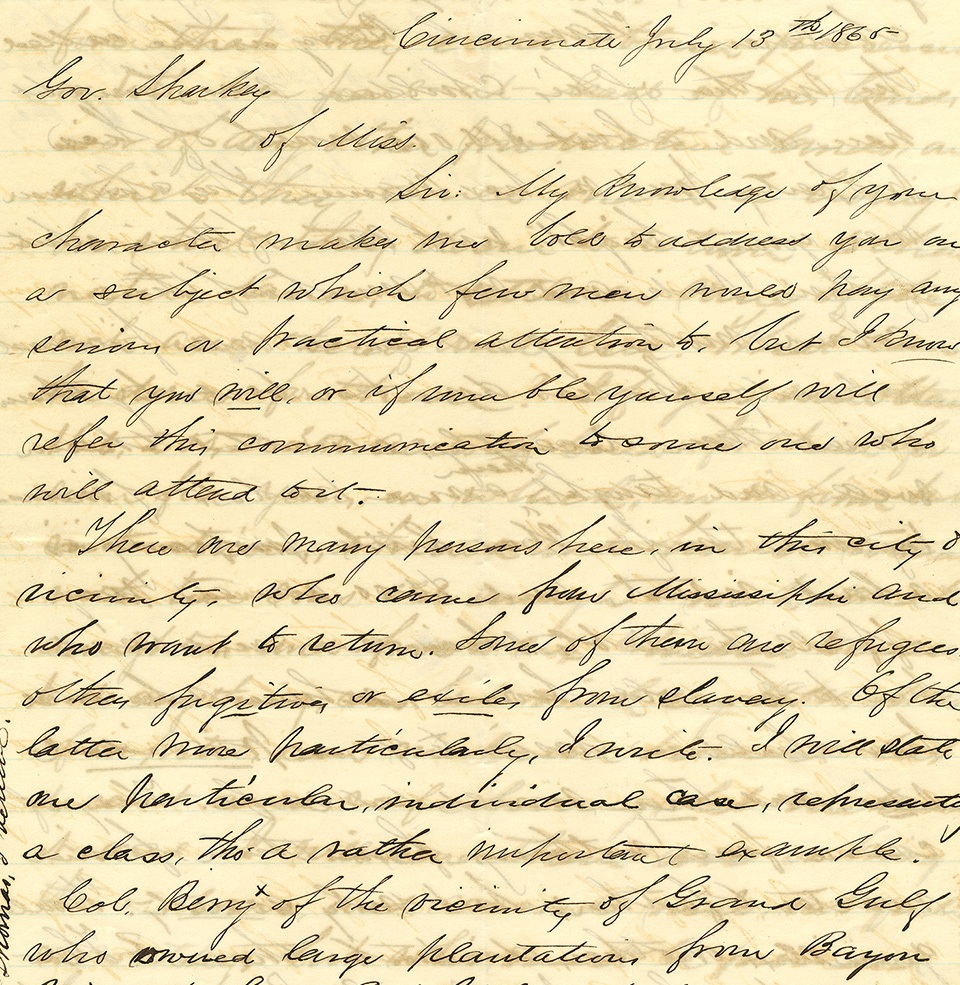 Cincinnati July 13th 1865
Gov. Sharkey
of Miss.
Sir: My knowledge of your
character makes me bold to address you on
a subject which few men would pay any
serious or practical attention to, but I know
that you will, or if unable yourself will
refer this communication to some one who
will attend to it.
There are many persons here, in this city &
vicinity, who came from Mississippi and
who want to return. Some of them are refugees
others fugitives or exiles from slavery. Of the
latter more particularly, I write. I will state
one particular, individual case, represents
a class, tho' a rather important example.
Col. Berry x of the vicinity of Grand Gulf
who owned large plantations from Bayou
Thomas, I believe.